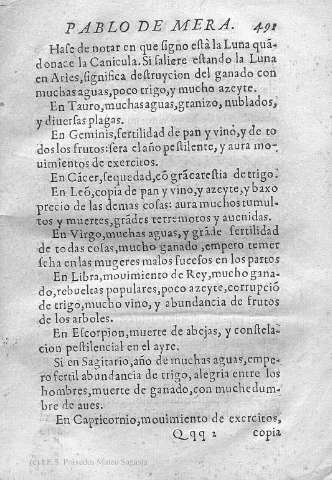 PABLO DE MERA. 491
Hase de notar en que signo està la Luna quã-
do nace la Canicula. Si saliere estando la Luna
en Aries, significa destruycion del ganado con
muchas aguas, poco trigo, y mucho azeyte.
En Tauro, muchas aguas, granizo, nublados,
y diuersas plagas.
En Geminis, fertilidad de pan y vino, y de to
dos los frutos: sera el año pestilente, y aura mo-
uimientos de exercitos.
En Cãcer, sequedad, cõ grã carestia de trigo.
En Leõ, copia de pan y vino, y azeyte, y baxo
precio de las demas cosas: aura muchos tumul-
tos y muertes, grãdes terremotos y auenidas.
En Virgo, muchas aguas, y grãde fertilidad
de todas cosas, mucho ganado, empero temer
se ha en las mugeres malos sucesos en los partos
En Libra, mouimiento de Rey, mucho gana-
do, rebueltas populares, poco azeyte, corrupciõ
de trigo, mucho vino, y abundancia de frutos
de los arboles.
En Escorpion, muerte de abejas, y constela-
cion pestilencial en el ayre.
Si en Sagitario, año de muchas aguas, empe-
ro fertil abundancia de trigo, alegria entre los
hombres, muerte de ganado, con muchedum-
bre de aues.
En Capricornio, mouimiento de exercitos,
Qqq 2 copia
(c) I.E.S. Práxedes Mateo Sagasta